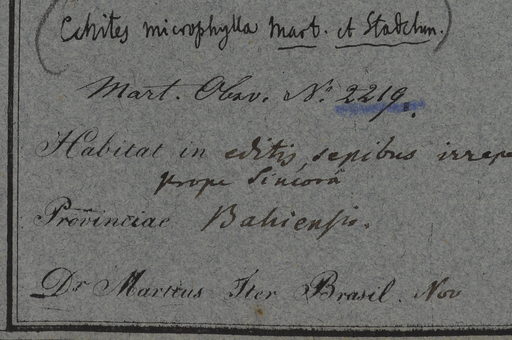 (Echites microphylla Mart. et Stadelm.)
Mart. Obsv. No. 2219.
Habitat in editis, sepibus irrepe
prope Sincorá
Provinciae Bahiensis.
Dr. Martius Iter Brasil. Nov